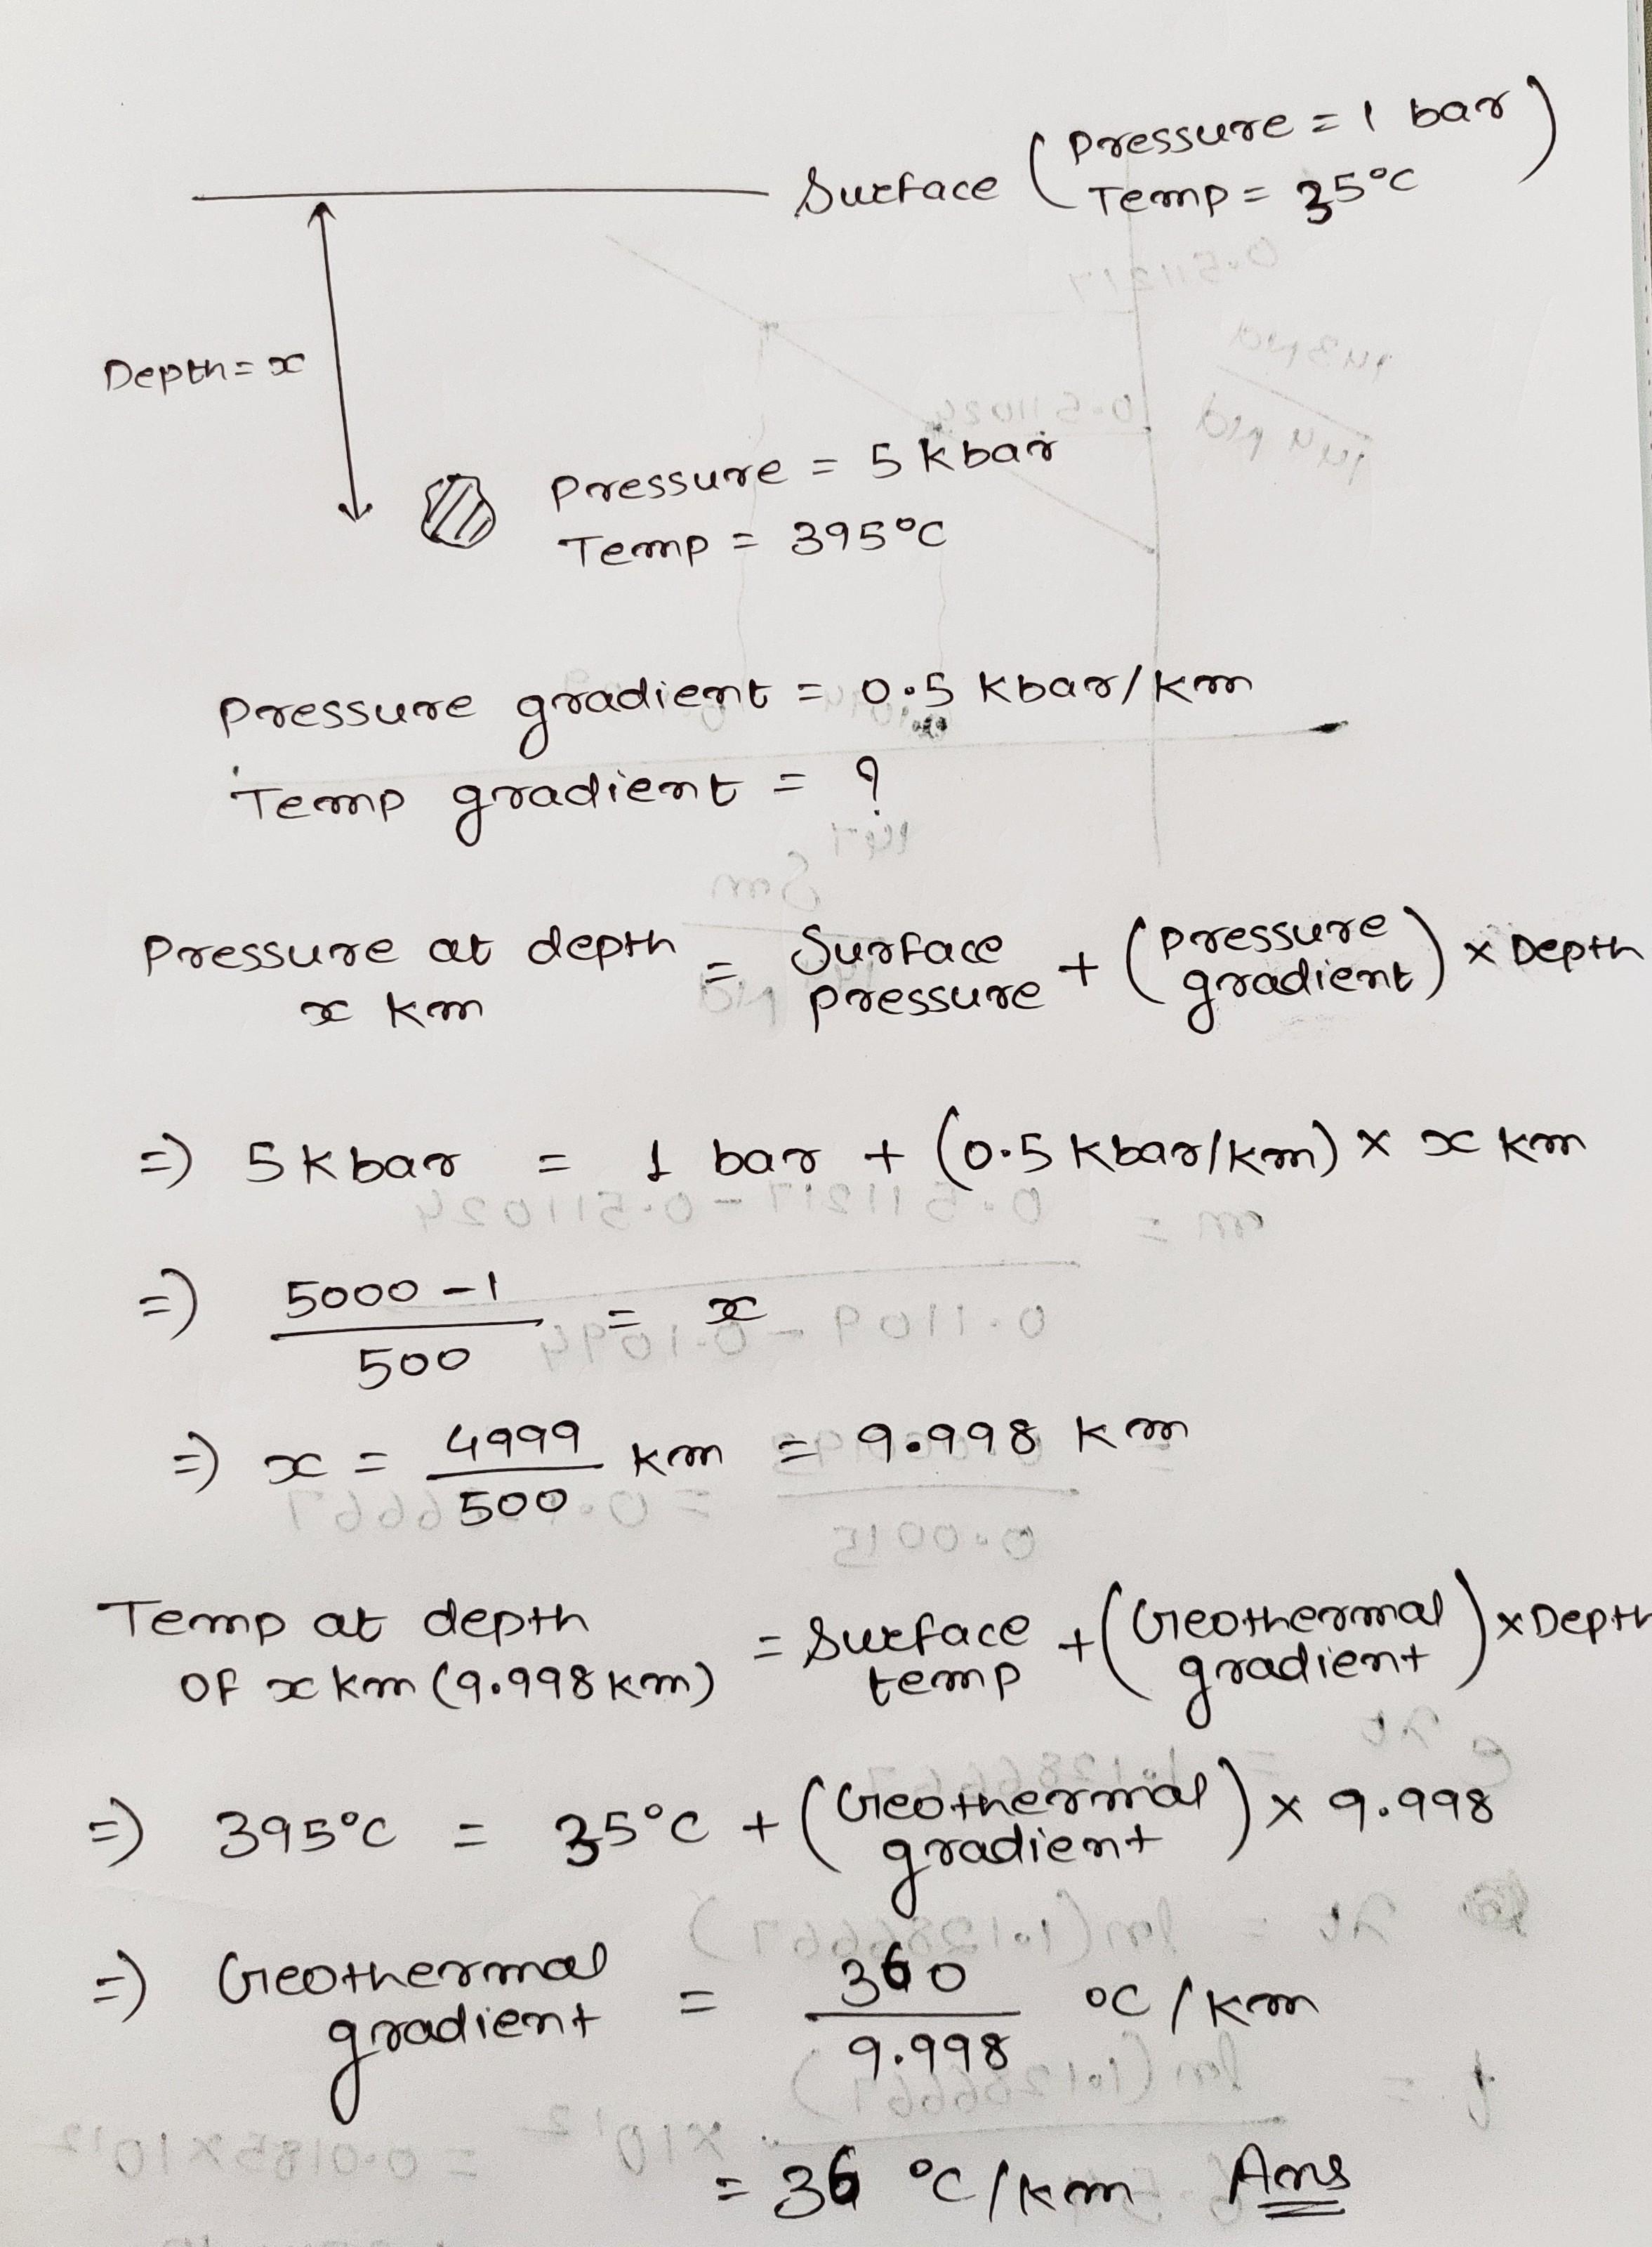 Surface ( Pressure = 1 bar
Temp = 35°C )
Depth = x
Pressure = 5 kbar
Temp = 395°C
Pressure gradient = 0.5 kbar/km
Temp gradient = ?
Pressure at depth x km = Surface pressure + (Pressure gradient) × Depth
=) 5 kbar = 1 bar + (0.5 kbar/km) × x km
=) 5000 - 1 / 500 = x
=) x = 4999 / 500 km = 9.998 km
Temp at depth of x km (9.998 km) = Surface temp + (Geothermal gradient) × Depth
=) 395°C = 35°C + (Geothermal gradient) × 9.998
=) Geothermal gradient = 360 / 9.998 °C / km
= 36 °C / km Ans